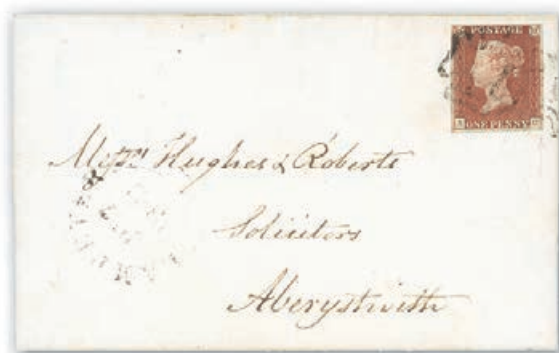 POSTAGE
ONE PENNY
Messrs Hughes & Roberts
Solicitors
Aberystwith